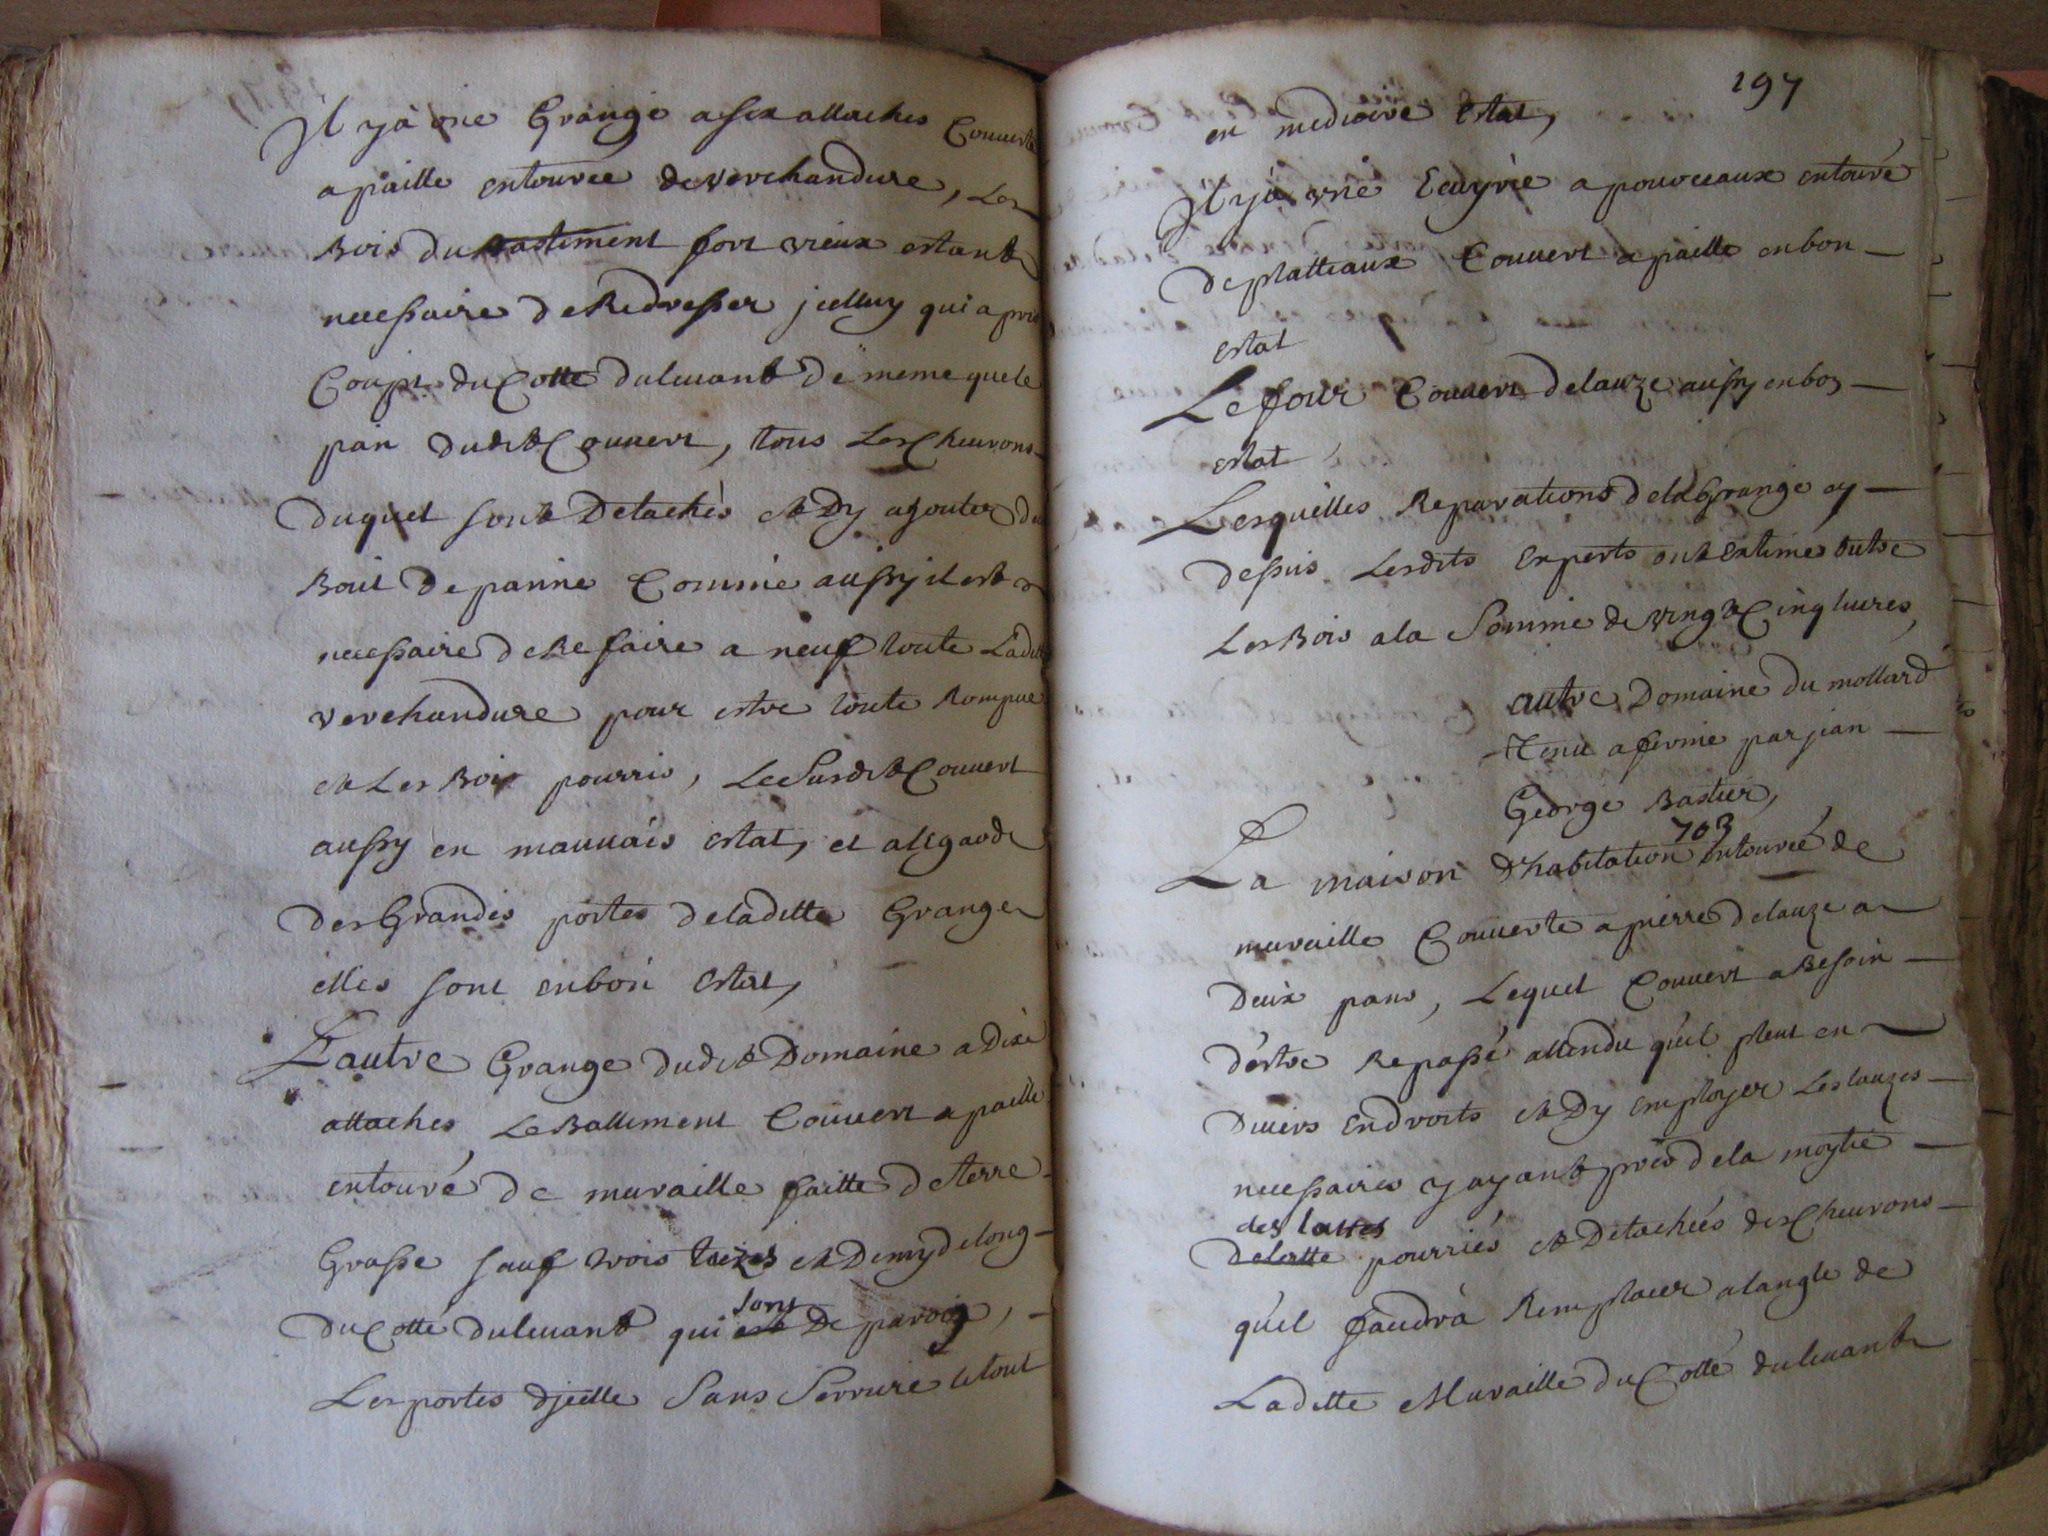 Il y à une Grange a six attaches Couverte
a paille entouree de verchandure, Les
Bois du Bastiment fort vieux estant
necessaire de Redresser jcelluy qui a pris
Coupt du Cotté du levant de meme que le
pan dudit Couvert, tous Les Chevrons
duquel sont Detachès et Dy ajouter du
Bout de panne Comme aussy il est
necessaire de Refaire a neuf toute Ladite
verchandure pour estre toute Rompue
et Les Bois pourris, Le Susdit Couvert
aussy en mauvais estat, et alegard
des Grandes portes de laditte Grange
elles sont en bon estat,
L'autre Grange dudit Domaine a Dix
attaches Le Battiment Couvert a paille
entouré de muraille faitte de terre
Grasse sauf trois toizes et Demy de long
du Cotté du levant qui sont de paroix,
Les portes d'jcelle Sans Serrure le tout
197
en mediocre estat,
Il y à une Ecuyrie a pourceaux entouré
de platteaux Couvert a paille en bon
estat
Le four Couvert de lauze aussy en bon
estat
Lesquelles Reparations de la Grange cy
dessus Lesdits Experts ont Extimés outre
Les Bois a la Somme de vingt Cinq livres,
autre Domaine du mollard
tenu a ferme par jean
George Bastier,
703
La maison d'habitation entourée de
muraille Couverte a pierre de lauze a
Deux pans, Lequel Couvert a Besoin
d'estre Repassé attendu qu'il pleut en
Divers Endroits et Dy Employer Les lauzes
necessaires y ayant près de la moytié
des lattes
de latte pourriés et Detachées des Chevrons
qu'il faudrà Remplacer a langle de
Laditte Muraille du Cotté du levant